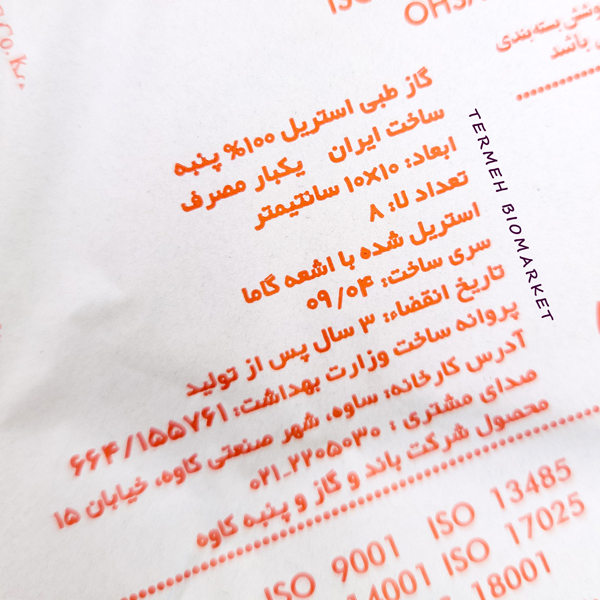 OHSA
بسته‌بندی
باشد
گاز طبی استریل ۱۰۰% پنبه
ساخت ایران یکبار مصرف
ابعاد: ۱۰X۱۰ سانتیمتر
تعداد لا: ۸
استریل شده با اشعه گاما
سری ساخت: ۰۹/۰۴
تاریخ انقضاء: ۳ سال پس از تولید
پروانه ساخت وزارت بهداشت: ۶۶۴/۱۵۵۷۶۱
آدرس کارخانه: ساوه، شهر صنعتی کاوه، خیابان ۱۵
صدای مشتری : ۰۲۱_۲۲۰۵۰۳۰
محصول شرکت باند و گاز و پنبه کاوه
ISO 9001 ISO 13485
14001 ISO 17025
18001
TERMEH BIOMARKET